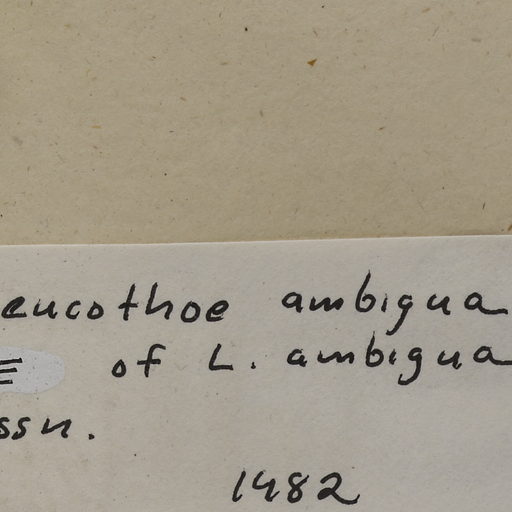 eucothoe ambigua
E of L. ambigua
ssn.
1982